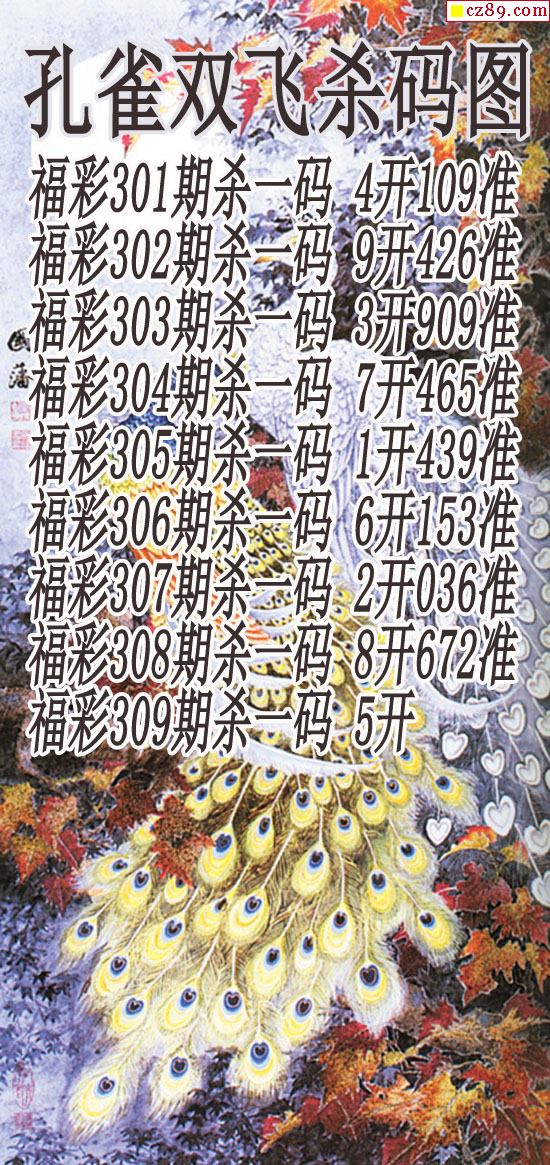 cz89.com
孔雀双飞杀码图
福彩301期杀一码 4开109准
福彩302期杀一码 9开426准
福彩303期杀一码 3开909准
福彩304期杀一码 7开465准
福彩305期杀一码 1开439准
福彩306期杀一码 6开153准
福彩307期杀一码 2开036准
福彩308期杀一码 8开672准
福彩309期杀一码 5开